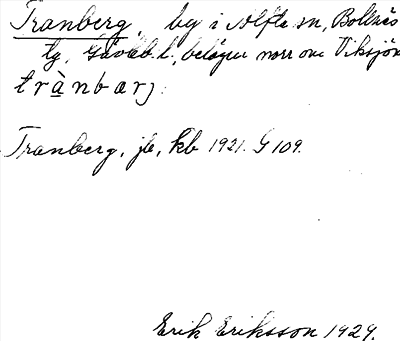 Tranberg, by i Alfta sn, Bollnäs
tg, Gävleb. l., belägen norr om Viksjön
trànbarj.
Tranberg, jb, kb 1921. G 109.
Erik Eriksson 1929.